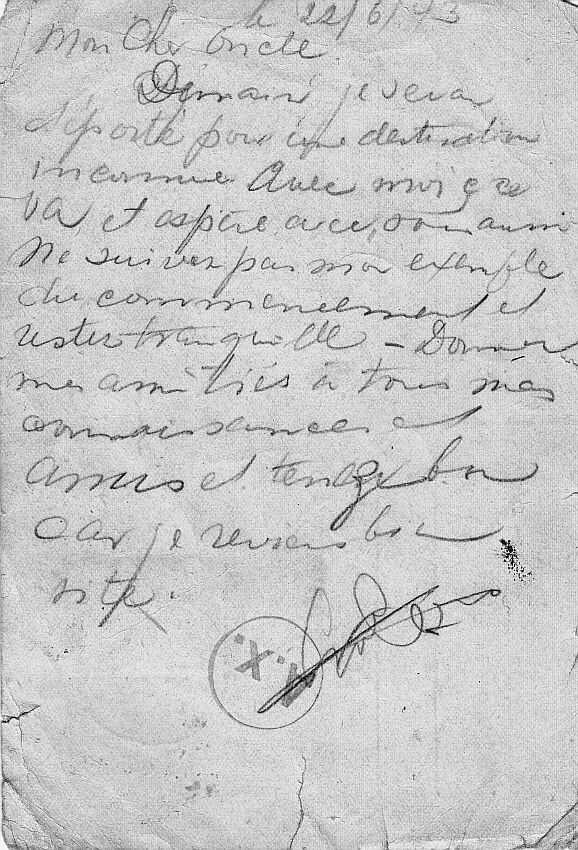 le 22/6/43
Mon Cher Oncle
Demain je serai
déporté pour une destination
inconnue. Avec moi ça
va et aspère avec vous aussi
Ne suivez pas mon exemple
du commencement et
restez tranquille - Donner
mes amitiés à tous mes
connaissances et
amis et tenez bon
car je reviens bien
vite.